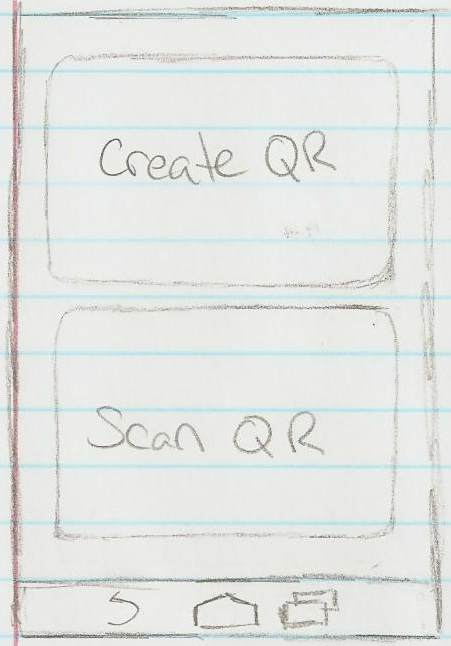 Create QR
Scan QR